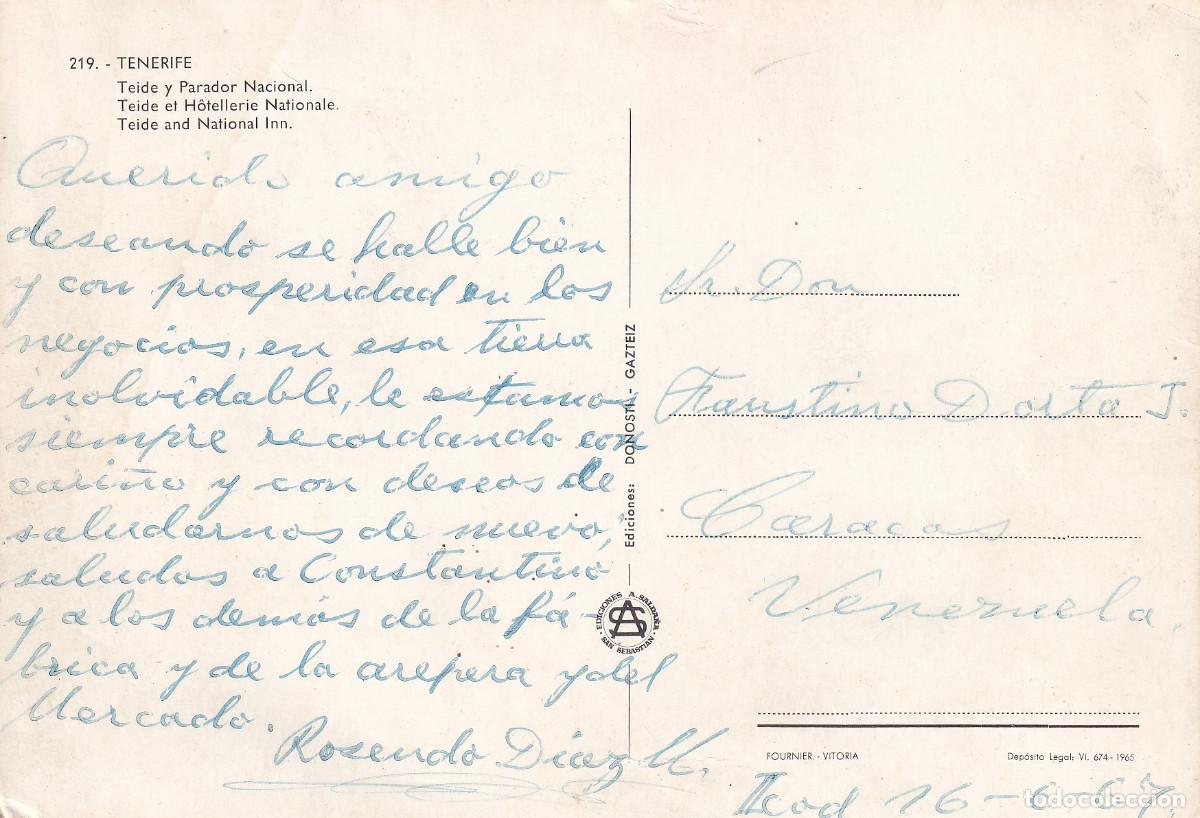 219. - TENERIFE
Teide y Parador Nacional.
Teide et Hôtellerie Nationale.
Teide and National Inn.
Querido amigo
deseando se halle bien
y con prosperidad en los
negocios, en esa tierra
inolvidable, le estamos
siempre recordando con
cariño y con deseos de
saludarnos de nuevo,
saludos a Constantino
y a los demás de la fá-
brica y de la arepera y del
Mercado.
Rosendo Díaz M.
Ediciones: DONOSTI - GAZTEIZ
EDICIONES A. SALDAÑA
SAN SEBASTIAN
AS
Sr. Don
Faustino Dorta J.
Caracas
Venezuela.
FOURNIER. - VITORIA
Depósito Legal: VI. 674 - 1965
Icod 16-6-67.
todocoleccion